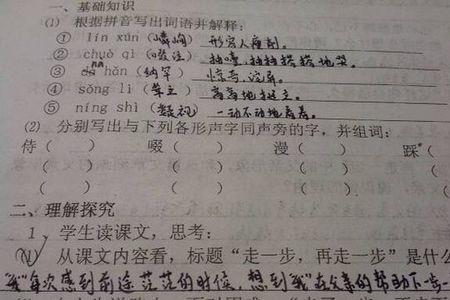 一、基础知识
(1) 根据拼音写出词语并解释:
① lín xún (嶙峋) 形容人瘦削。
② chuò qì (啜泣) 抽噎,抽抽搭搭地哭。
③ nà hǎn (纳罕) 惊奇,诧异。
④ sǒng lì (耸立) 高高地挺立。
⑤ níng shì (凝视) 一动不动地看着。
(2) 分别写出与下列各形声字同声旁的字,并组词:
侍( ) 啜( ) 漫( ) 踩( )
( ) ( ) ( ) ( )
二、理解探究
1、学生读课文,思考:
(1) 从课文内容看,标题“走一步,再走一步”是什么
“我”每次感到前途茫茫的时候,想到“我”在父亲的帮助下一步一